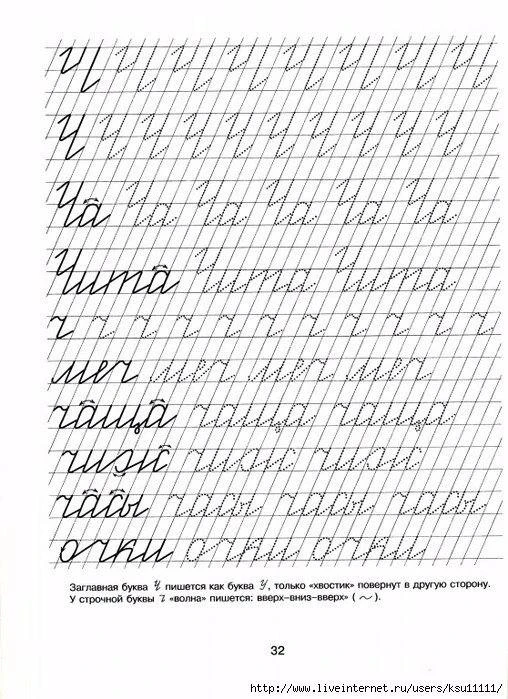 Ч Ч Ч Ч Ч Ч Ч Ч Ч
Ч Ч Ч Ч Ч Ч Ч Ч Ч Ч Ч
Ча Ча Ча Ча Ча Ча
Чита Чита Чита
ч ч ч ч ч ч ч ч ч ч ч
меч меч меч меч
чаща чаща чаща
чиж чиж чиж
часы часы часы часы
очки очки очки
Заглавная буква Ч пишется как буква У, только «хвостик» повернут в другую сторону.
У строчной буквы ч «волна» пишется: вверх–вниз–вверх» ( ~ ).
32
http://www.liveinternet.ru/users/ksu11111/